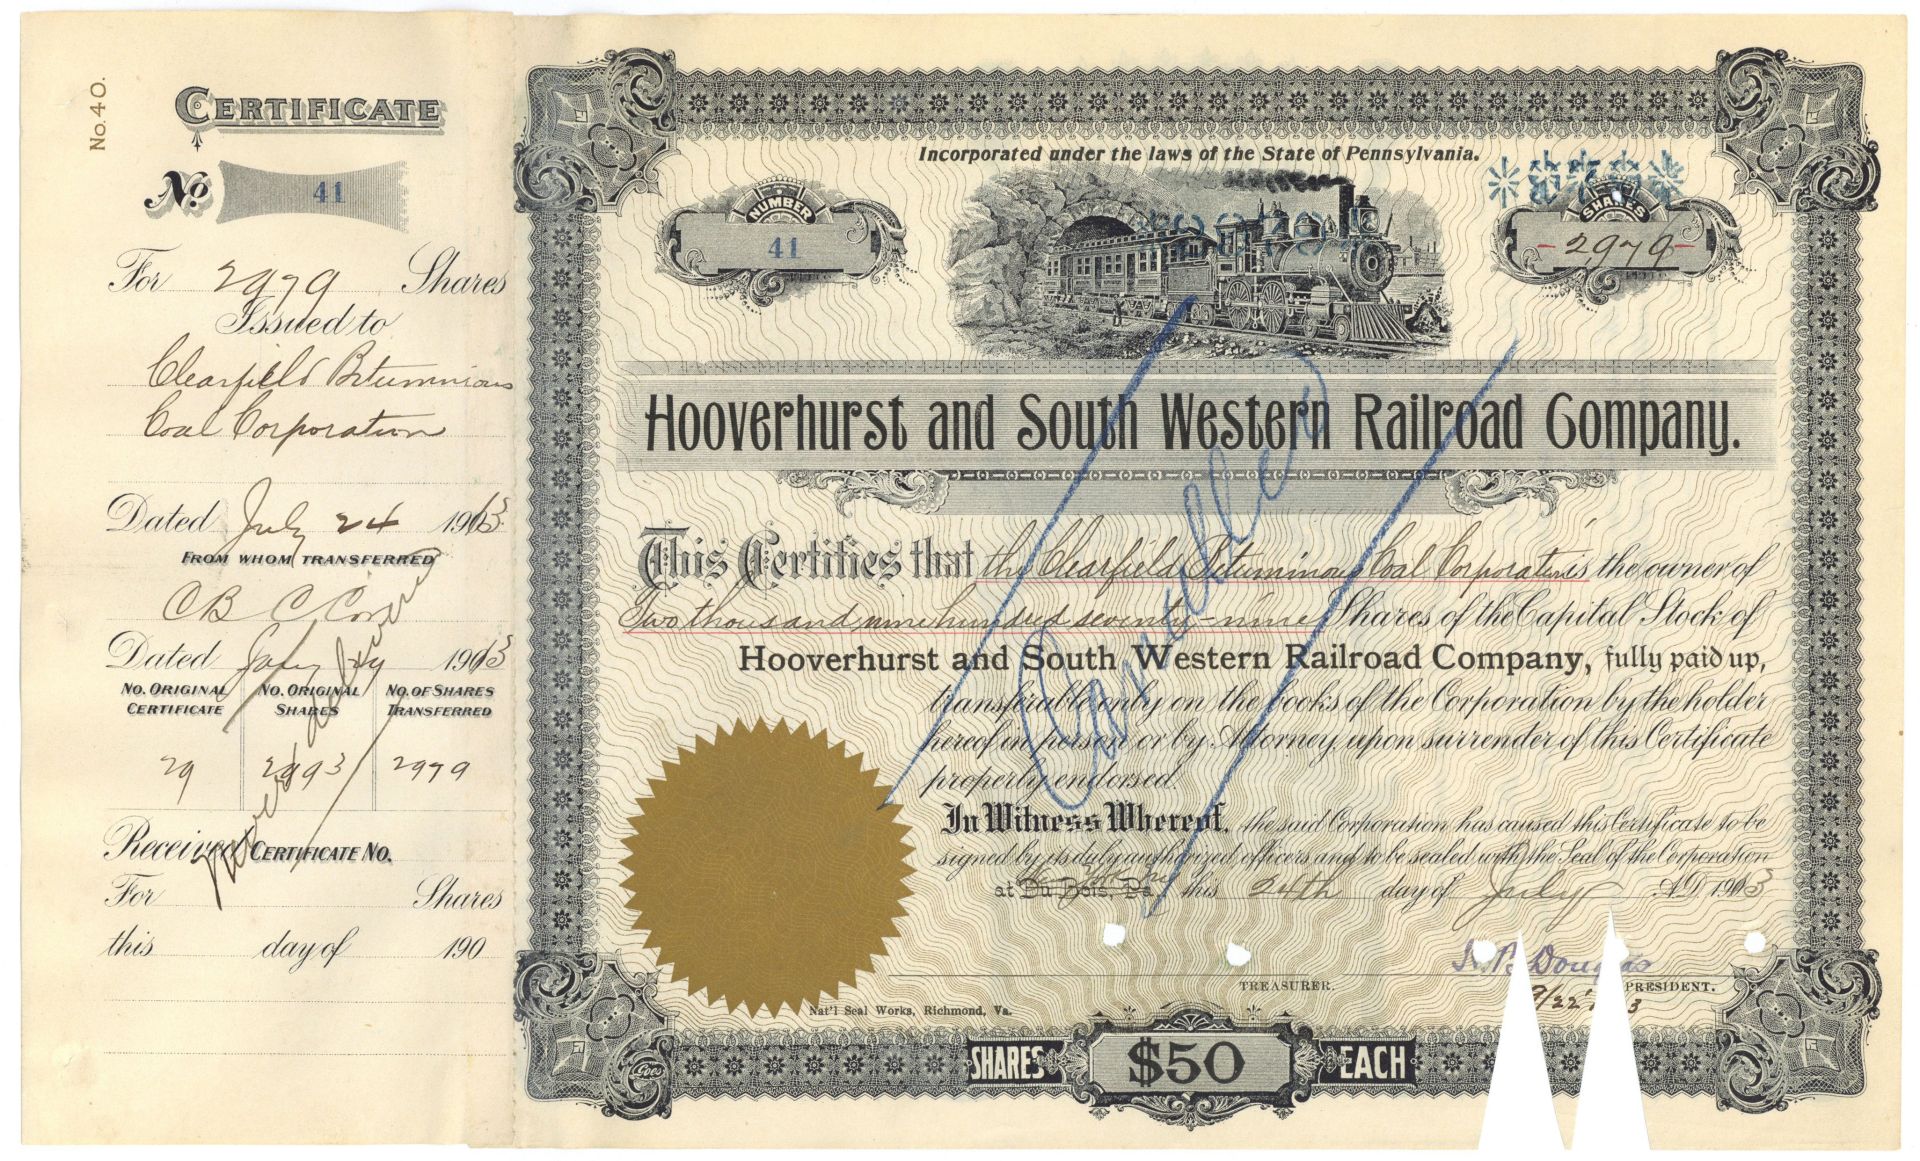 No. 40.
CERTIFICATE
No 41
For 2979 Shares
Issued to
Clearfield Bituminous
Coal Corporation
Dated July 24 1913
FROM WHOM TRANSFERRED
C B C Corp
Dated 1913
NO. ORIGINAL CERTIFICATE
NO. ORIGINAL SHARES
NO. OF SHARES TRANSFERRED
29 2993 2979
Never delivered
Received CERTIFICATE NO.
For Shares
this day of 190
Incorporated under the laws of the State of Pennsylvania.
NUMBER
41
SHARES
-2979-
Hooverhurst and South Western Railroad Company.
This Certifies that the Clearfield Bituminous Coal Corporation is the owner of
Two thousand nine hundred seventy-nine Shares of the Capital Stock of
Hooverhurst and South Western Railroad Company, fully paid up,
transferable only on the books of the Corporation by the holder
hereof in person or by Attorney, upon surrender of this Certificate
properly endorsed.
In Witness Whereof, the said Corporation has caused this Certificate to be
signed by its duly authorized officers and to be sealed with the Seal of the Corporation
at Du Bois, Pa. this 24th day of July A.D. 1913
Cancelled
Douglas
TREASURER.
PRESIDENT.
Nat'l Seal Works, Richmond, Va.
Goes
SHARES $50 EACH